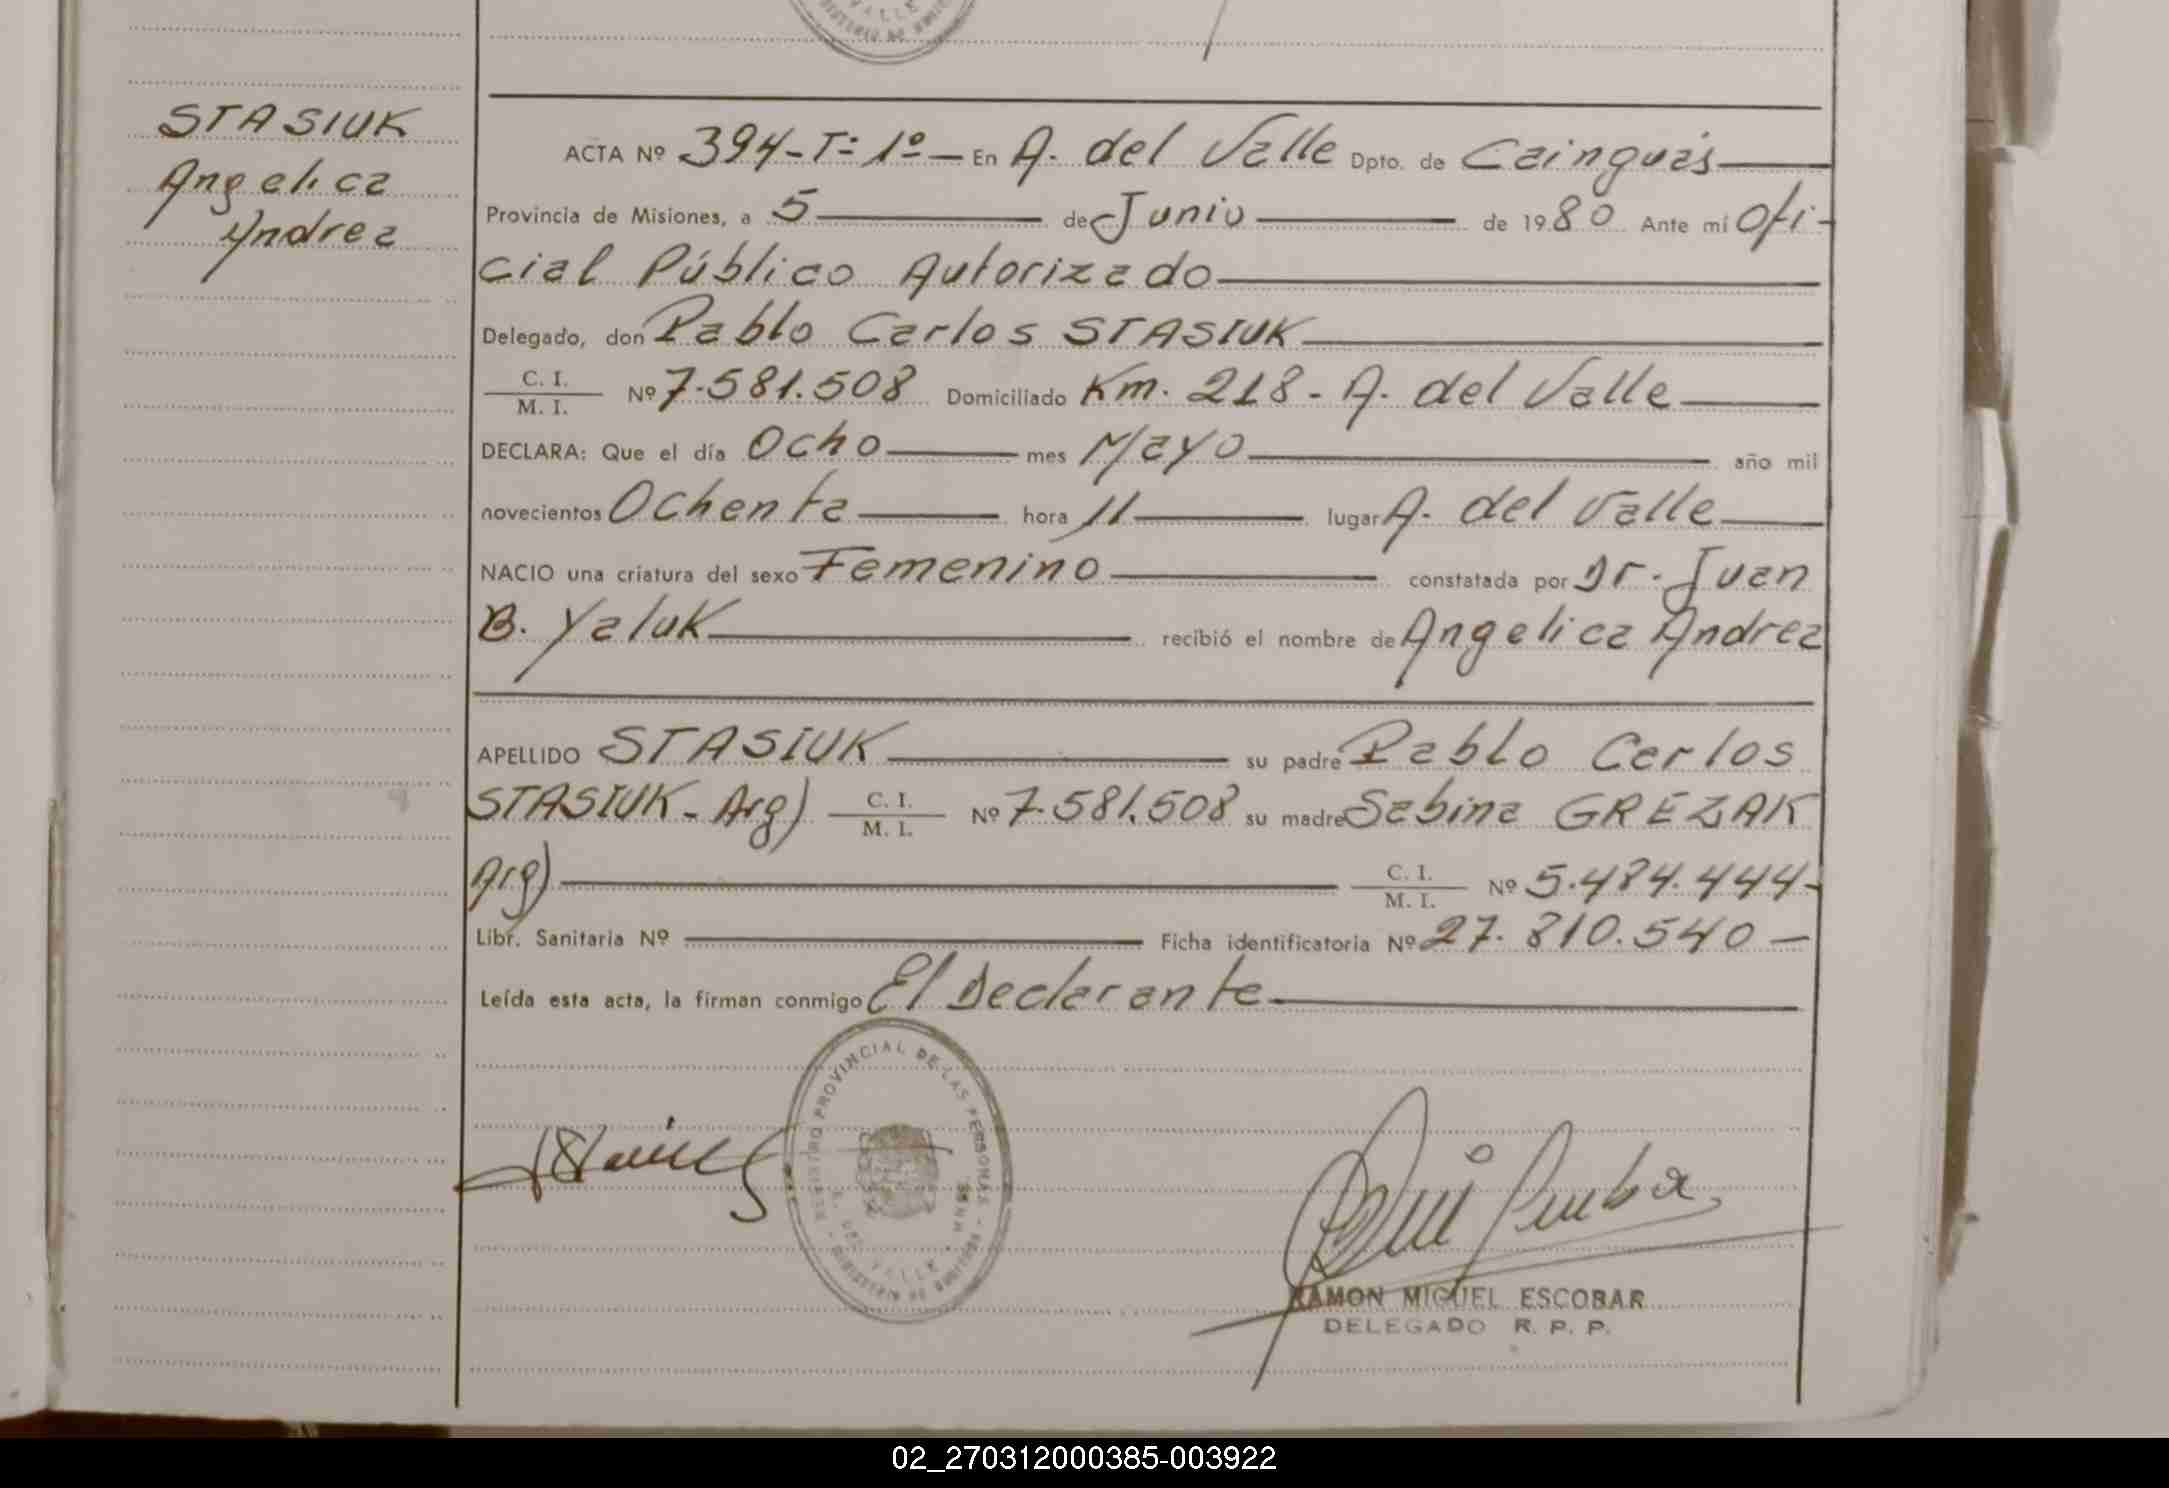 STASIUK
Angelica
Andrea
ACTA Nº 394-Tº 1º — En A. del Valle Dpto. de Cainguás
Provincia de Misiones, a 5 de Junio de 1980 Ante mí Ofi-
cial Público Autorizado
Delegado, don Pablo Carlos STASIUK
C. I.
M. I. Nº 7.581.508 Domiciliado Km. 218 - A. del Valle
DECLARA: Que el día Ocho mes Mayo año mil
novecientos Ochenta hora 11 lugar A. del Valle
NACIO una criatura del sexo Femenino constatada por Dr. Juan
B. Yaluk recibió el nombre de Angelica Andrea
APELLIDO STASIUK su padre Pablo Carlos
STASIUK - Arg) C. I. M. I. Nº 7.581.508 su madre Sabina GREZAK
Arg) C. I. M. I. Nº 5.484.444-
Libr. Sanitaria Nº Ficha identificatoria Nº 27.810.540 —
Leída esta acta, la firman conmigo El Declarante
REGISTRO PROVINCIAL DE LAS PERSONAS
A. DEL VALLE
RAMON MIGUEL ESCOBAR
DELEGADO R. P. P.
02_270312000385-003922